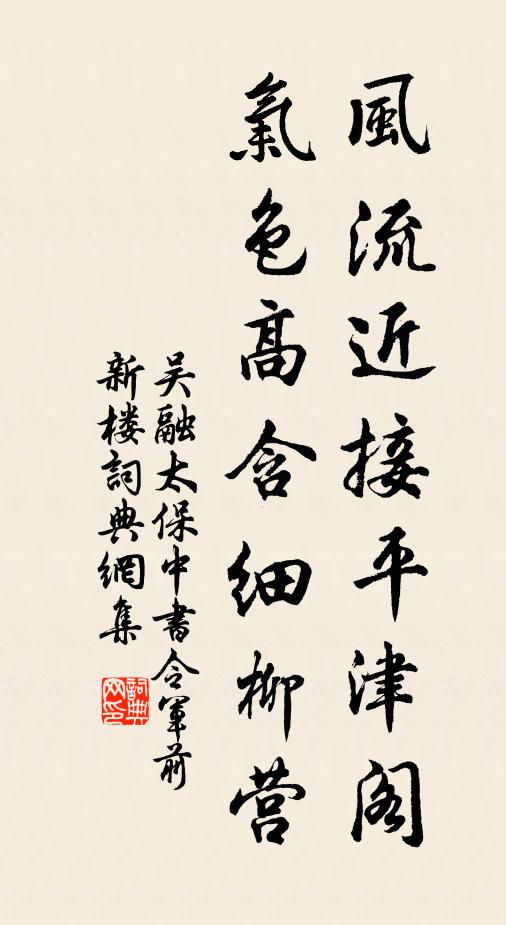 風流近接平津阁
氣色高含細柳营
吴融太保中書令軍前
新楼詞典網集
詞典网印